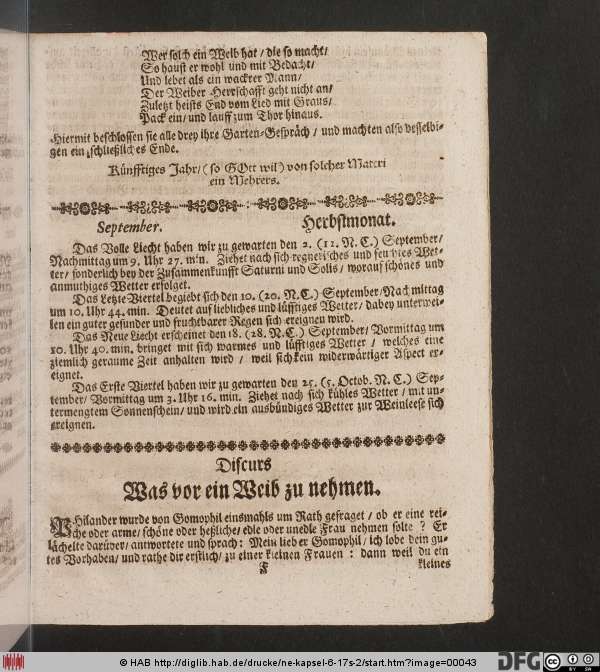 Wer solch ein Weib hat / die so macht /
So haust er wohl und mit Bedacht /
Und lebet als ein wackrer Mann /
Der Weiber Herrschafft geht nicht an /
Zuletzt heists End vom Lied mit Graus /
Pack ein / und lauff zum Thor hinaus.
Hiermit beschlossen sie alle drey ihre Garten-Gespräch / und machten also desselbi-
gen ein schließliches Ende.
Künfftiges Jahr / (so GOtt wil) von solcher Materi
ein Mehrers.
September. Herbstmonat.
Das Volle Liecht haben wir zu gewarten den 2. (12. N. C.) September /
Nachmittag um 9. Uhr 27. min. Ziehet nach sich regnerisches und feuchtes Wet-
ter / sonderlich bey der Zusammenkunfft Saturni und Solis / worauf schönes und
anmuthiges Wetter erfolget.
Das Letzte Viertel begiebt sich den 10. (20. N. C.) September / Nachmittag
um 10. Uhr 44. min. Deutet auf liebliches und lüfftiges Wetter / dabey unterwei-
len ein guter gesunder und fruchtbarer Regen sich ereignen wird.
Das Neue Liecht erscheinet den 18. (28. N. C.) September / Vormittag um
10. Uhr 40. min. bringet mit sich warmes und lüfftiges Wetter / welches eine
ziemlich geraume Zeit anhalten wird / weil sich kein widerwärtiger Aspect er-
eignet.
Das Erste Viertel haben wir zu gewarten den 25. (5. Octob. N. C.) Sep-
tember / Vormittag um 3. Uhr 16. min. Ziehet nach sich kühles Wetter / mit un-
termengtem Sonnenschein / und wird ein ausbündiges Wetter zur Weinleese sich
ereignen.
Discurs
Was vor ein Weib zu nehmen.
PHilander wurde von Gomophil einsmahls um Rath gefraget / ob er eine rei-
che oder arme / schöne oder heßliche / edle oder unedle Frau nehmen solte? Er
lächelte darüber / antwortete und sprach: Mein lieber Gomophil / ich lobe dein gu-
tes Vorhaben / und rathe dir erstlich / zu einer kleinen Frauen: dann weil du ein
F kleines
© HAB http://diglib.hab.de/drucke/ne-kapsel-6-17s-2/start.htm?image=00043
DFG
CC BY SA